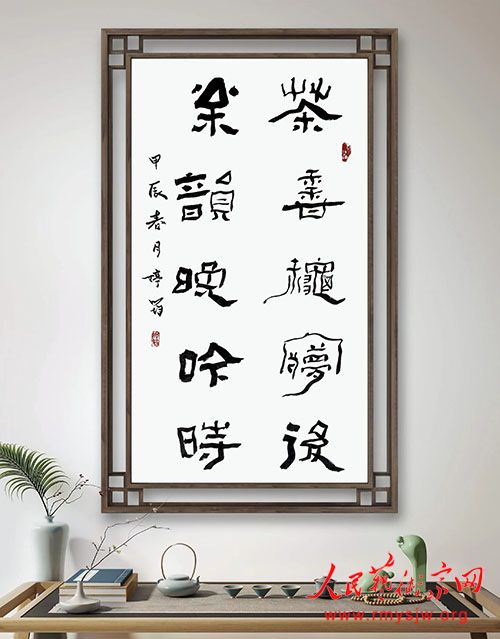 茶香穐㝱後
枀韻晚吟時
甲辰春月婷
人民艺术家网
www.rmysjw.org